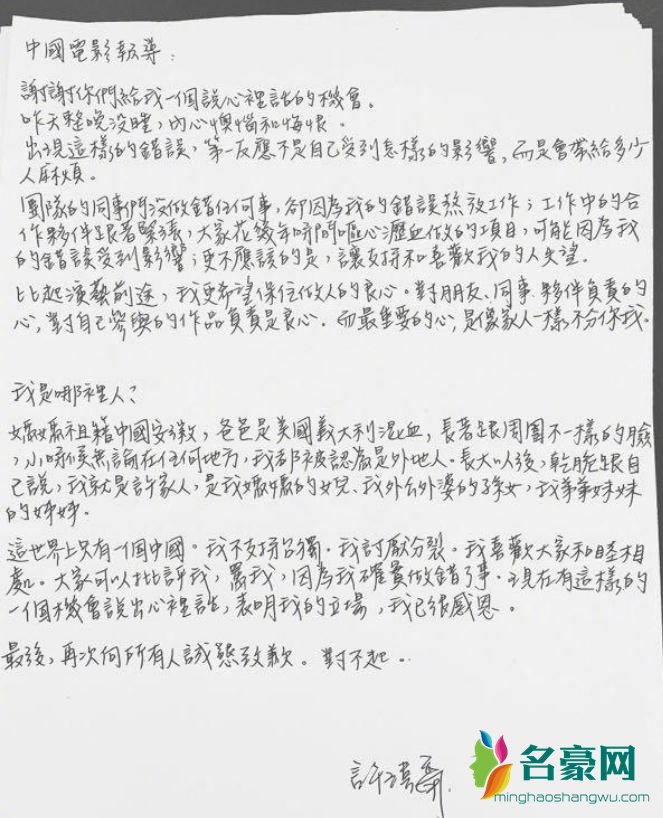 中國電影報導：
謝謝你們給我一個說心裡話的機會。
昨天整晚沒睡，內心懊惱和悔恨。
出現這樣的錯誤，第一反應不是自己受到怎樣的影響，而是會帶給多少
人麻煩。
團隊的同事們沒做錯任何事，卻因為我的錯誤熬夜工作；工作中的合
作夥伴跟著緊張，大家花幾年時間嘔心瀝血做的項目，可能因為我
的錯誤受到影響；更不應該的是，讓支持和喜歡我的人失望。
比起演藝前途，我更希望保住做人的良心。對朋友、同事、夥伴負責的
心，對自己參與的作品負責是良心。而最重要的心，是像家人一樣不分你我。
我是哪裡人？
媽媽祖籍中國安徽，爸爸是美國義大利混血，長著跟周圍不一樣的臉
，小時候無論在任何地方，我都被認為是外地人。長大以後，乾脆跟自
己說，我就是許家人，是我媽媽的女兒、我外公外婆的孫女，我弟弟妹妹
的姊姊。
這世界上只有一個中國。我不支持台獨。我討厭分裂。我喜歡大家和睦相
處。大家可以批評我，罵我，因為我確實做錯了事。現在有這樣的
一個機會說出心裡話，表明我的立場，我已很感恩。
最後，再次向所有人誠懇致歉。對不起。
許瑋甯
名豪网
minghaoshangwu.com